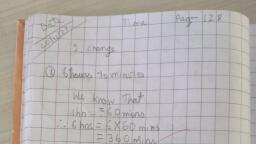 Date
Time
Page 128
2. change
① 6 hours to minutes
We know that
1hr = 60 mins
∴ 6 hrs = 6 X 60 mins
= 360 mins